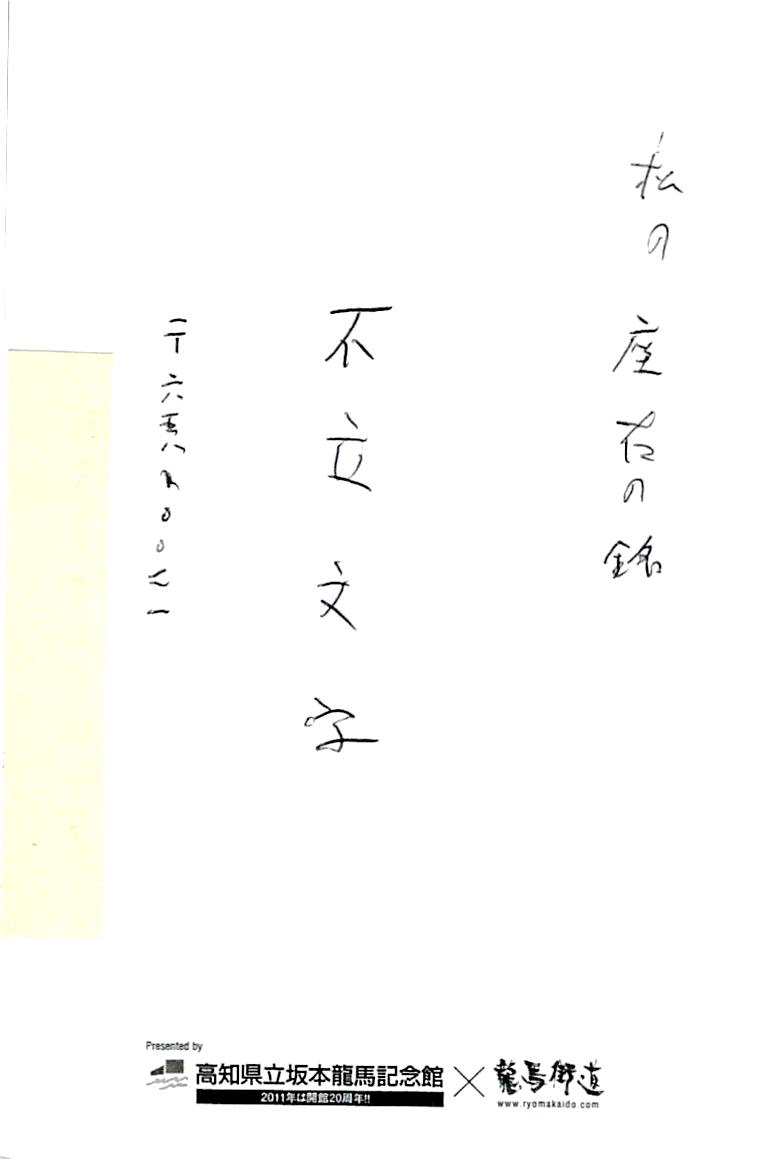 私の座右の銘
不立文字
〒六五八〇〇二一
Presented by
高知県立坂本龍馬記念館 × 龍馬街道
2011年は開館20周年!!
www.ryomakaido.com